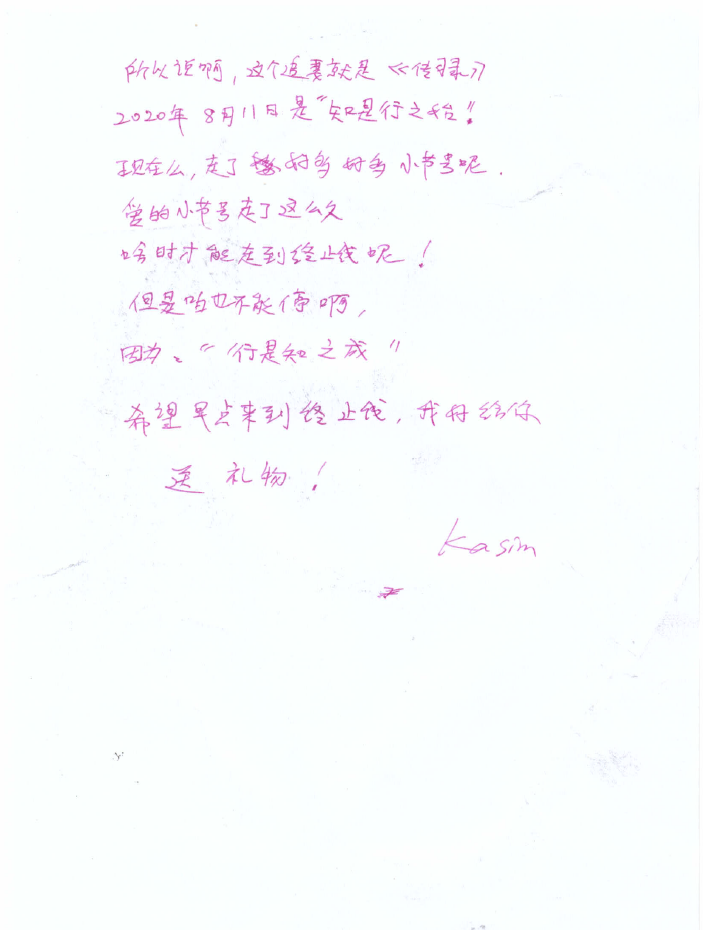 所以说啊，这个追要就是《传习录》
2020年 8月11日是"知是行之始！"
现在么，走了 好多好多小节号呢．
曾的小节号走了这么久
啥时才能走到终止线呢！
但是咱也不能停啊，
因为、"行是知之成"
希望早点来到终止线，我好给你
送礼物！
Kasim